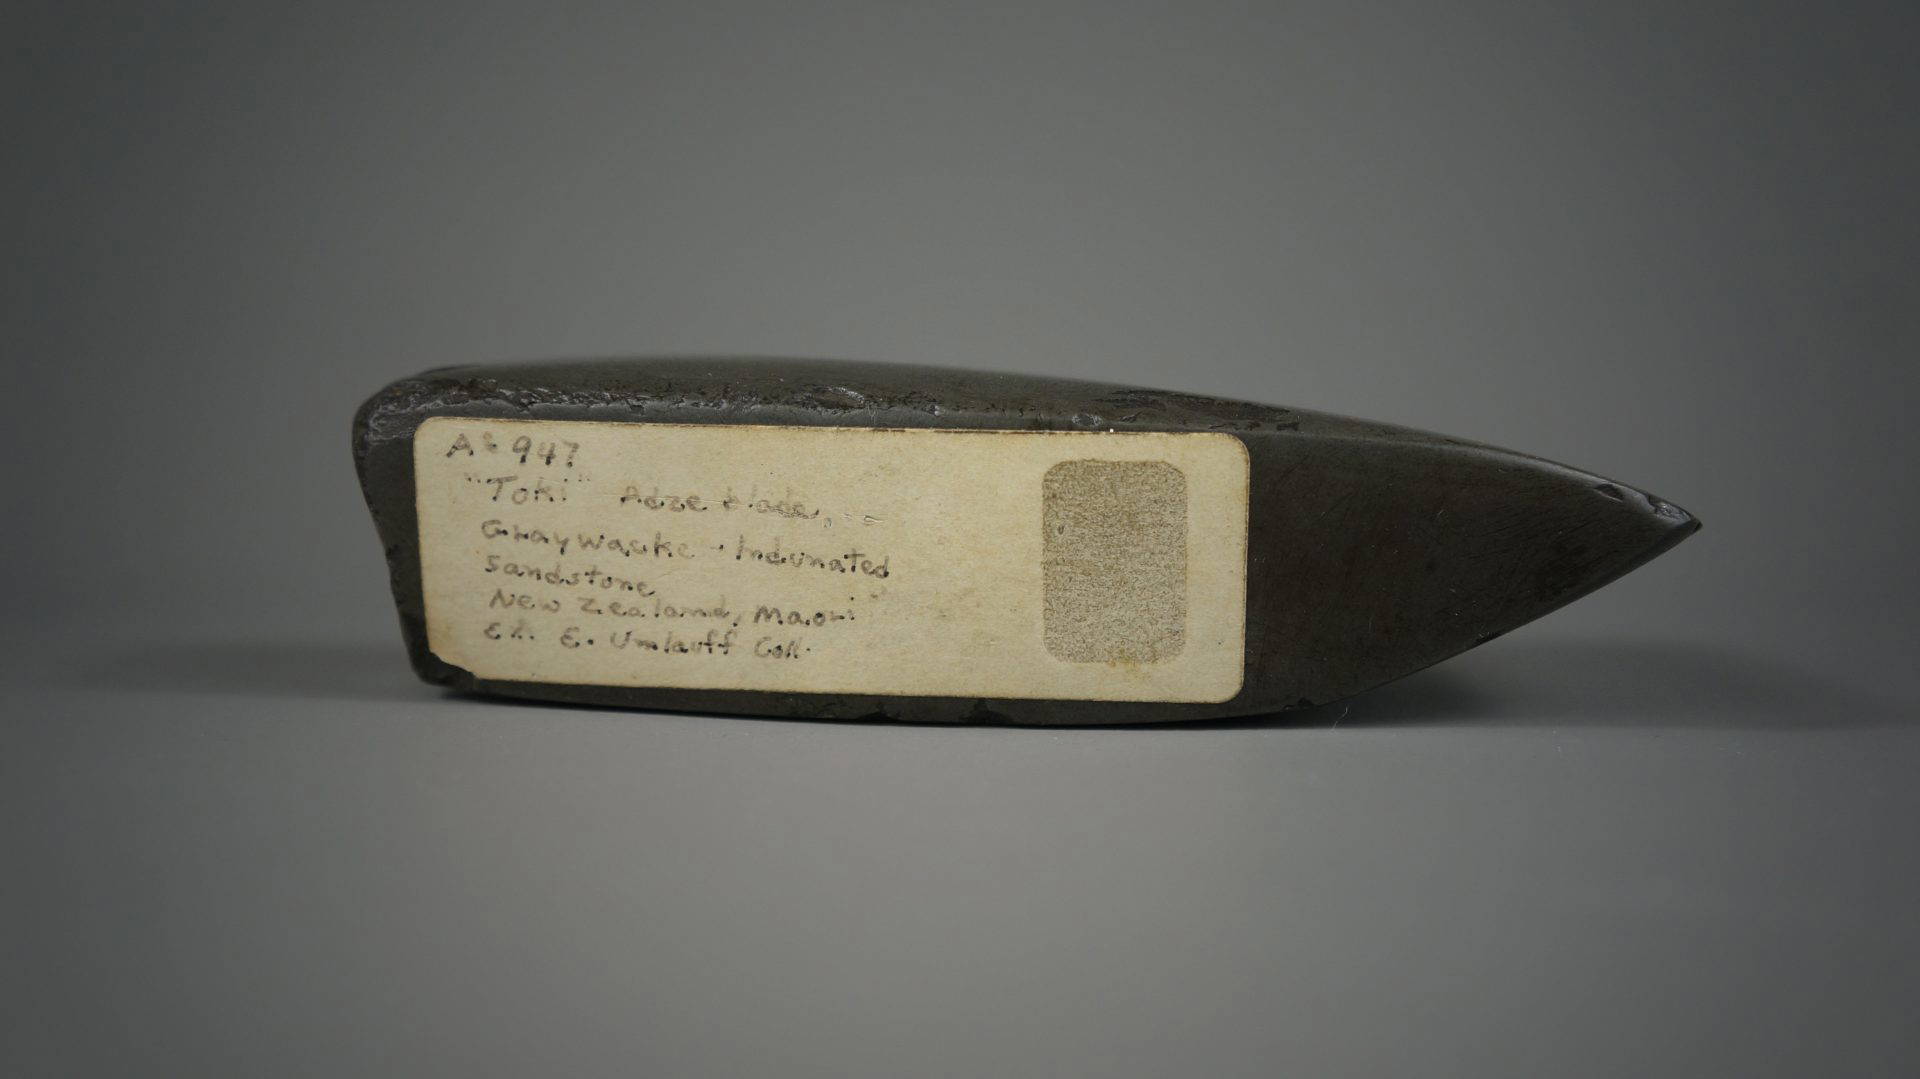 A: 947
"Toki" Adze blade,
Graywacke - Indurated
Sandstone
New Zealand, Maori
Ex. E. Umlauff Coll.